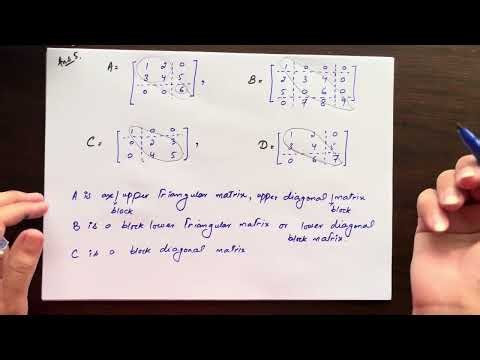 Ans 5.
A = [ 1 2 0 B = [ 1 0 0 0
3 4 5 2 3 4 0
0 0 6 ] , 5 0 6 0
0 7 8 9 ]
C = [ 1 0 0 D = [ 1 2 0
0 2 3 3 4 5
0 4 5 ] , 0 6 7 ]
A is upper triangular matrix, upper diagonal matrix
block block
B is a block lower triangular matrix or lower diagonal
block matrix.
C is a block diagonal matrix